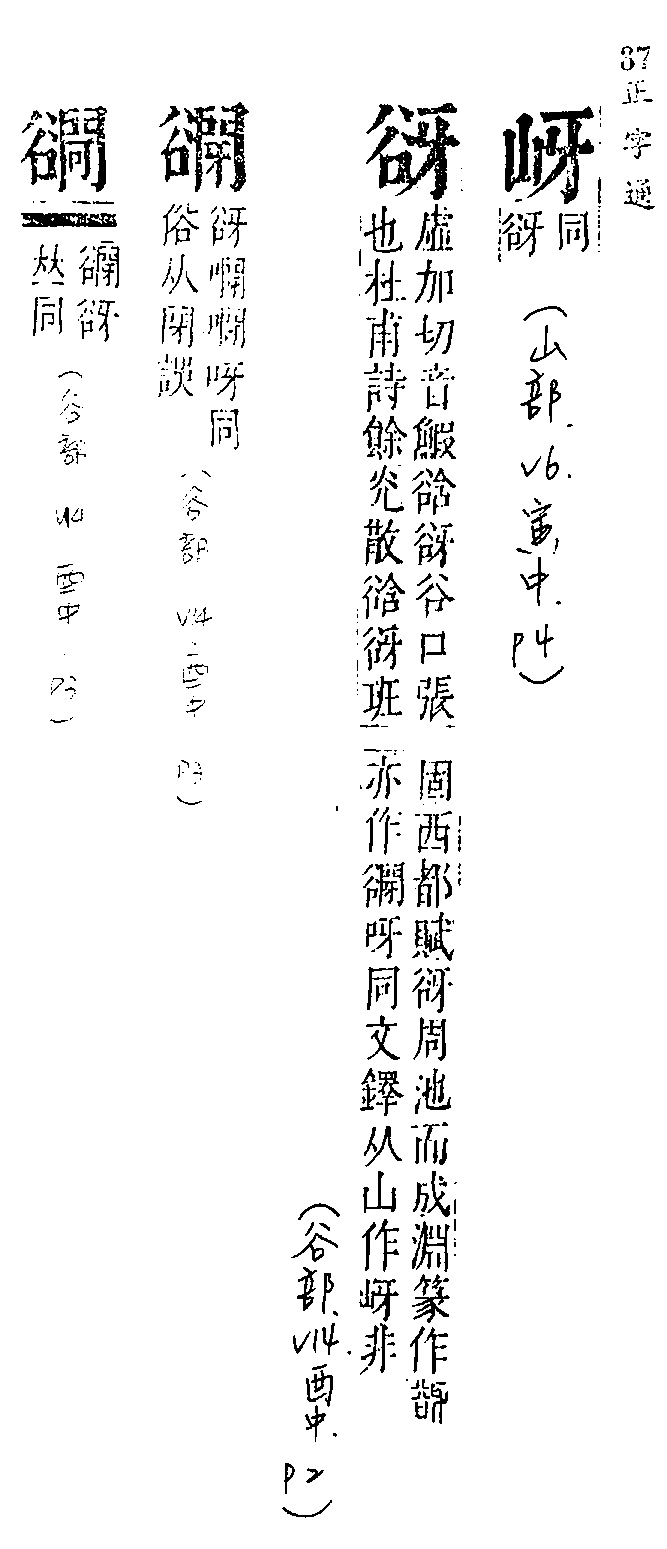 37正字通
岈
同
谺
(山部.V6.寅中.P4)
谺
虛加切音鰕谽谺谷口張
也杜甫詩餘光散谽谺班
固西都賦谺周池而成淵篆作
亦作𧯆呀同文鐸从山作岈非
(谷部.V14.酉中.P2)
谺
呀同
俗从閉誤
(谷部 V14.酉中 P3)
谺
𠀤同
(谷部 V14 酉中.P3)